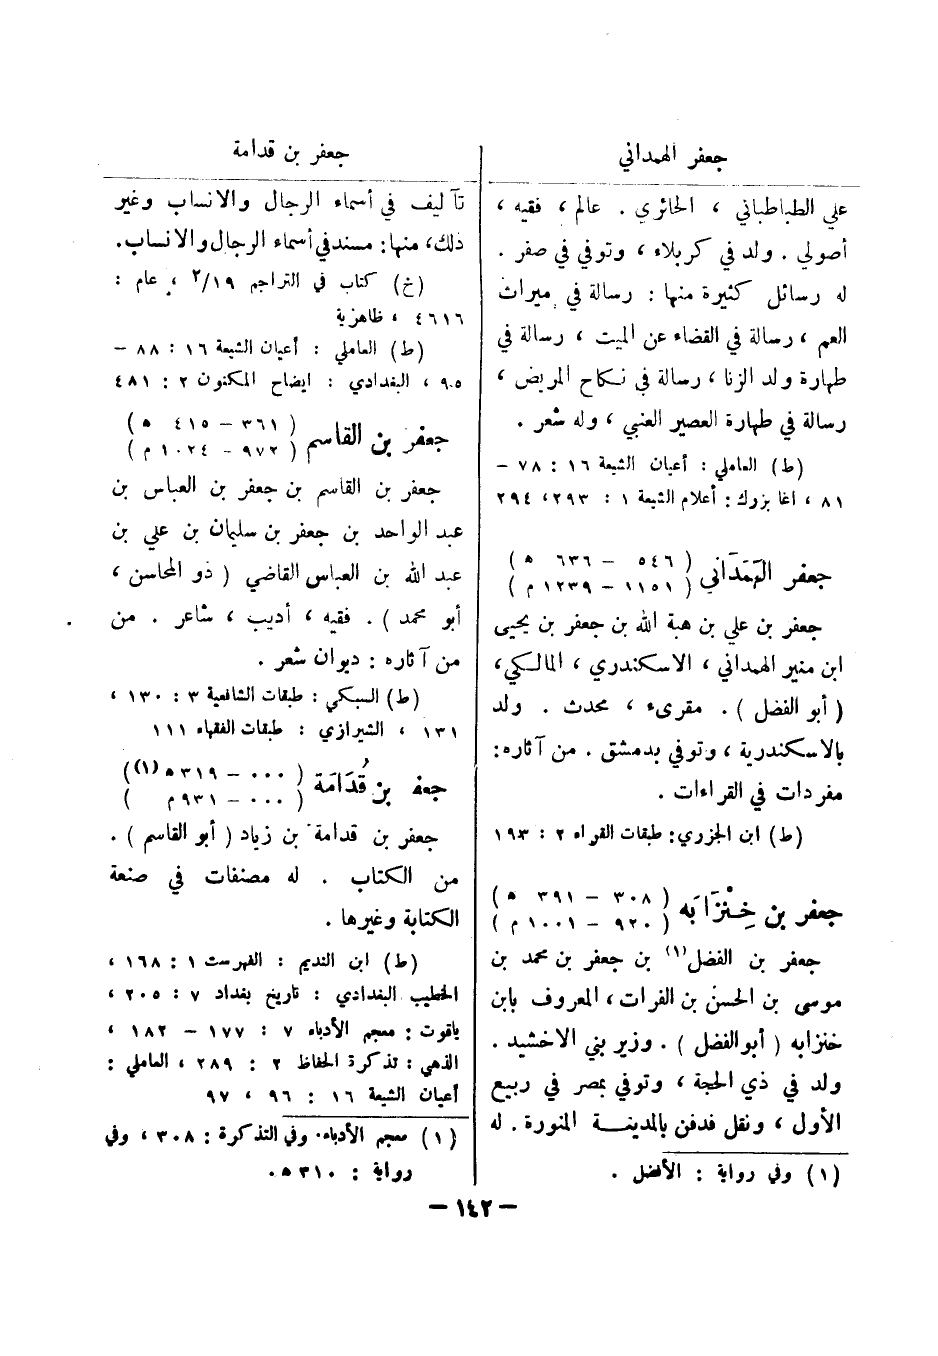 جعفر الهمداني
علي الطباطباني ، الحائري . عالم ، فقيه ،
أصولي . ولد في كربلاء ، وتوفي في صفر .
له رسائل كثيرة منها : رسالة في ميراث
العم ، رسالة في القضاء عن الميت ، رسالة في
طهارة ولد الزنا ، رسالة في نكاح المريض ،
رسالة في طهارة العصير العنبي ، وله شعر .
(ط) العاملي : أعيان الشيعة ١٦ : ٧٨ –
٨١ ، اغا بزرك : أعلام الشيعة ١ : ٢٩٣، ٢٩٤
جعفر الهَمَداني ( ٥٤٦ – ٦٣٦ ه )
( ١١٥١ – ١٢٣٩ م )
جعفر بن علي بن هبة الله بن جعفر بن يحيى
ابن منير الهمداني ، الاسكندري ، المالكي،
( أبو الفضل ) . مقرىء ، محدث . ولد
بالاسكندرية ، وتوفي بدمشق . من آثاره:
مفردات في القراءات .
(ط) ابن الجزري: طبقات القراء ٢ : ١٩٣
جعفر بن خِنْزَابه ( ٣٠٨ – ٣٩١ ه )
( ٩٢٠ – ١٠٠١ م )
جعفر بن الفضل(١) بن جعفر بن محمد بن
موسى بن الحسن بن الفرات ، المعروف بابن
خنزابه ( أبو الفضل ) . وزير بني الاخشيد .
ولد في ذي الحجة ، وتوفي بمصر في ربيع
الأول ، ونقل فدفن بالمدينة المنورة . له
(١) وفي رواية : الأفضل .
جعفر بن قدامة
تآليف في أسماء الرجال والانساب وغير
ذلك، منها: مسند في أسماء الرجال والانساب.
(خ) كتاب في التراجم ٢/١٩ ، عام :
٤٦١٦ ، ظاهرية
(ط) العاملي : أعيان الشيعة ١٦ : ٨٨ –
٩٠٥ ، البغدادي : ايضاح المكنون ٢ : ٤٨١
جعفر بن القاسم ( ٣٦١ – ٤١٥ ه )
( ٩٧٢ – ١٠٢٤ م )
جعفر بن القاسم بن جعفر بن العباس بن
عبد الواحد بن جعفر بن سليمان بن علي بن
عبد الله بن العباس القاضي ( ذو المحاسن ،
أبو محمد ) . فقيه ، أديب ، شاعر . من
من آثاره : ديوان شعر .
(ط) السبكي : طبقات الشافعية ٣ : ١٣٠ ،
١٣١ ، الشيرازي : طبقات الفقهاء ١١١
جعفر بن قُدَامَة ( ٠٠٠ – ٣١٩ ه(١) )
( ٠٠٠ – ٩٣١ م )
جعفر بن قدامة بن زياد ( أبو القاسم ) .
من الكتاب . له مصنفات في صنعة
الكتابة وغيرها .
(ط) ابن النديم : الفهرست ١ : ١٦٨ ،
الخطيب البغدادي : تاريخ بغداد ٧ : ٢٠٥ ،
ياقوت : معجم الأدباء ٧ : ١٧٧ – ١٨٢ ،
الذهبي : تذكرة الحفاظ ٢ : ٢٨٩ ، العاملي :
أعيان الشيعة ١٦ : ٩٦ ، ٩٧
(١) معجم الأدباء. وفي التذكرة : ٣٠٨ ، وفي
رواية : ٣١٠ ه.
– ١٤٢ –